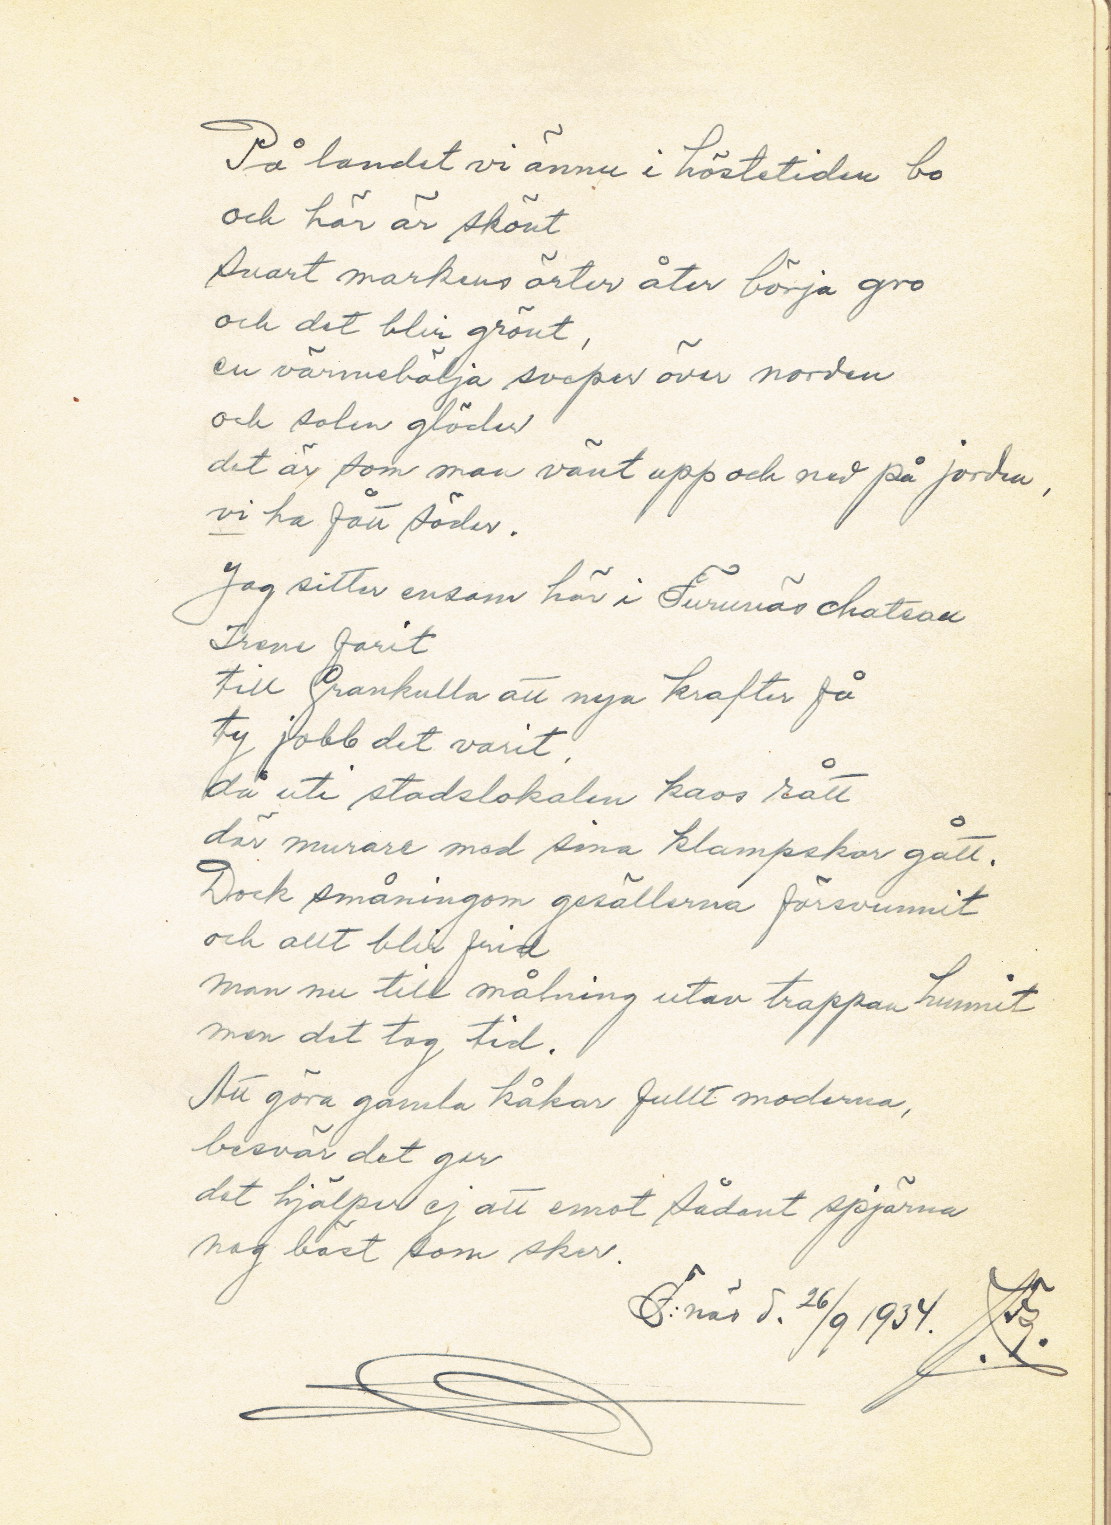 På landet vi ännu i höstetiden bo
och här är skönt
Snart markens örter åter börja gro
och det blir grönt,
en värmebölja sveper över norden
och solen glöder
det är som man vänt upp och ned på jorden,
vi ha fått söder.
Jag sitter ensam här i Furunäs chateau
Irene farit
till Grankulla att nya krafter få
ty jobb det varit,
då uti stadslokalen kaos rått
där murare med sina klampskor gått.
Dock småningom gesällerna försvunnit
och allt blir frid
man nu till målning utav trappan hunnit
men det tog tid.
Att göra gamla kåkar fullt moderna,
besvär det ger
det hjälper ej att emot sådant spjärna
nog bäst som sker.
F:näs d. 26/9 1934.